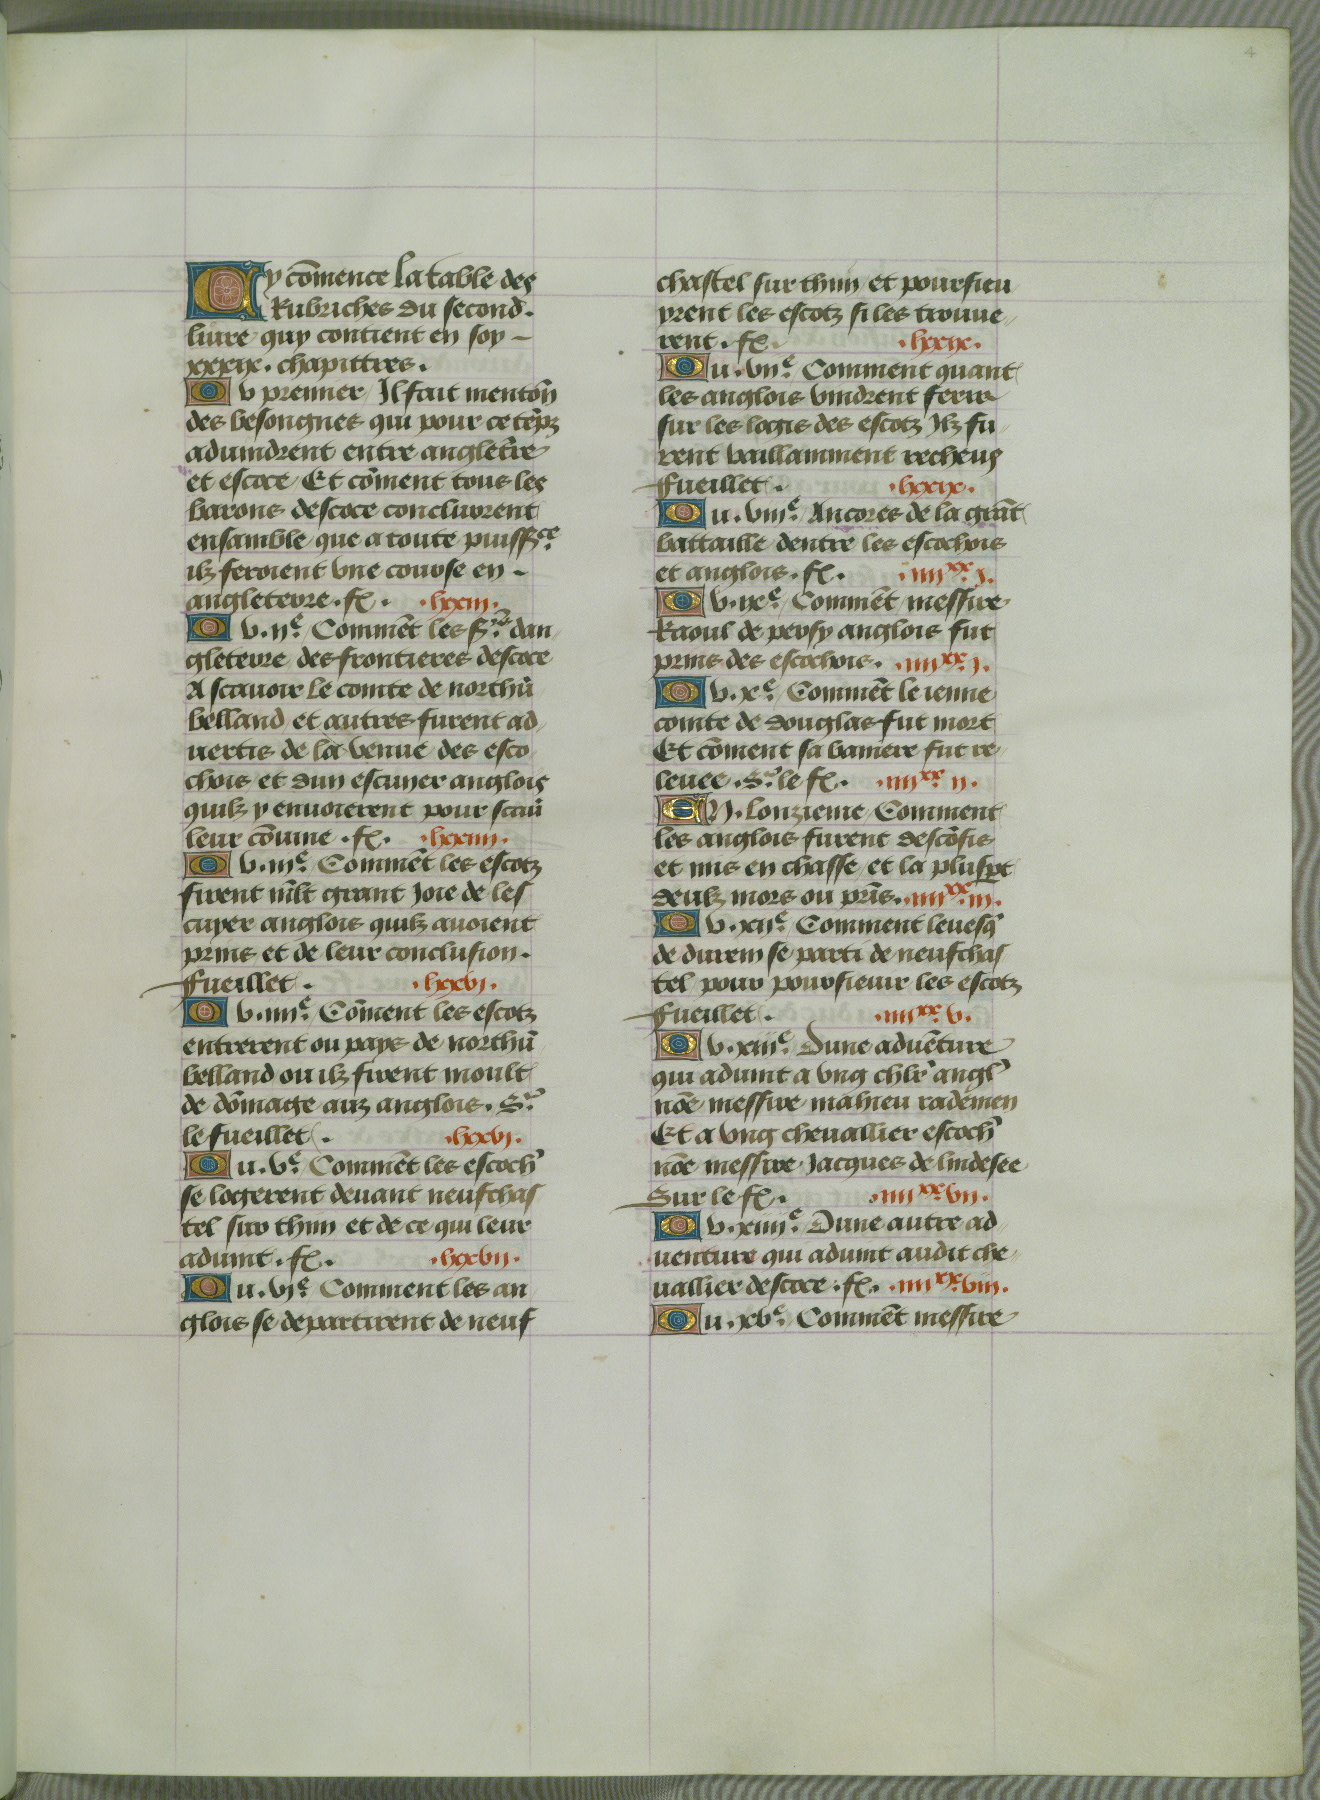 4
Cy cõmence la table des
Rubriches du second.
liure quy contient en soy -
xxxix. chapittres.
Du premier Il fait mentõn
des besongnes qui pour ce tẽps
aduindrent entre angletr̃e
et escoce Et cõment tous les
barons descoce concluirent
ensamble que a toute puissᶜᵉ
ilz feroient vne course en -
angleterre .fᵒ. .lxxiii.
Du .iiᵉ. Commẽt les Sʳˢ. dan
gleterre des frontieres descoce
A scauoir le comte de northũ
belland et autres furent ad
uertis de la venue des esco
chois et dun escuyer anglois
quilz y enuoierent pour scauʳ
leur cõuine .fᵒ. .lxxiiii.
Du .iiiᵉ. Commẽt les escotz
firent mlt grant Joie de les
cuyer anglois quilz auoient
prins et de leur conclusion.
fueillet. .lxxvi.
Du .iiiiᵉ. Cõment les escotz
entrerent ou pays de northũ
belland ou ilz firent moult
de dõmage aux anglois. Sʳ.
le fueillet. .lxxvi.
Du .vᵉ. Commẽt les escoch'
se logerent deuant neufchas
tel sur thin et de ce qui leur
aduint .fᵒ. .lxxvii.
Du .viᵉ. Comment les an
glois se departirent de neuf
chastel sur thin et poursieu
yrent les escotz si les trouue
rent .fᵒ. .lxxix.
Du .viiᵉ. Comment quant
les anglois vindrent ferir
sur les logis des escotz Ilz fu
rent vaillamment recheus
fueillet. .lxxix.
Du .viiiᵉ. Ancores de la grãt
battaille dentre les escochois
et anglois .fᵒ. .iiiiˣˣ.j.
Du .ixᵉ. Commẽt messire
Raoul de persy anglois fut
prins des escochois. .iiiiˣˣ.j.
Du .xᵉ. Commẽt le ienne
comte de douglas fut mort
Et cõment sa baniere fut re
leuee .Sʳ. le fᵒ. .iiiiˣˣ.ii.
EN. lonzieme Comment
les anglois furent descõfis
et mis en chasse et la pluspt
deulz mors ou prĩs. .iiiiˣˣ.iii.
Du .xiiᵉ. Comment leuesq̃
de durem se parti de neufchas
tel pour poursieuir les escotz
fueillet. .iiiiˣˣ.v.
Du .xiiiᵉ. Dune aduẽture
qui aduint a vng chlr̃ angl'
nõe messire mahieu rademen
Et a vng cheuallier escoch'
nõe messire Jacques de lindesee
Sur le fᵒ. .iiiiˣˣ.vii.
Du .xiiiiᵉ. Dune autre ad
uenture qui aduint audit che
uallier descoce .fᵒ. .iiiiˣˣ.viii.
Du .xvᵉ. Commẽt messire